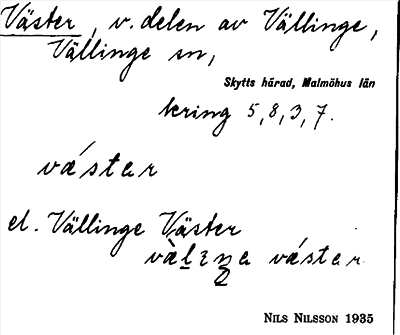 Väster, v. delen av Vällinge,
Vällinge sn,
Skytts härad, Malmöhus län
kring 5, 8, 3, 7.
vástar
el. Vällinge Väster
vástar
NILS NILSSON 1935